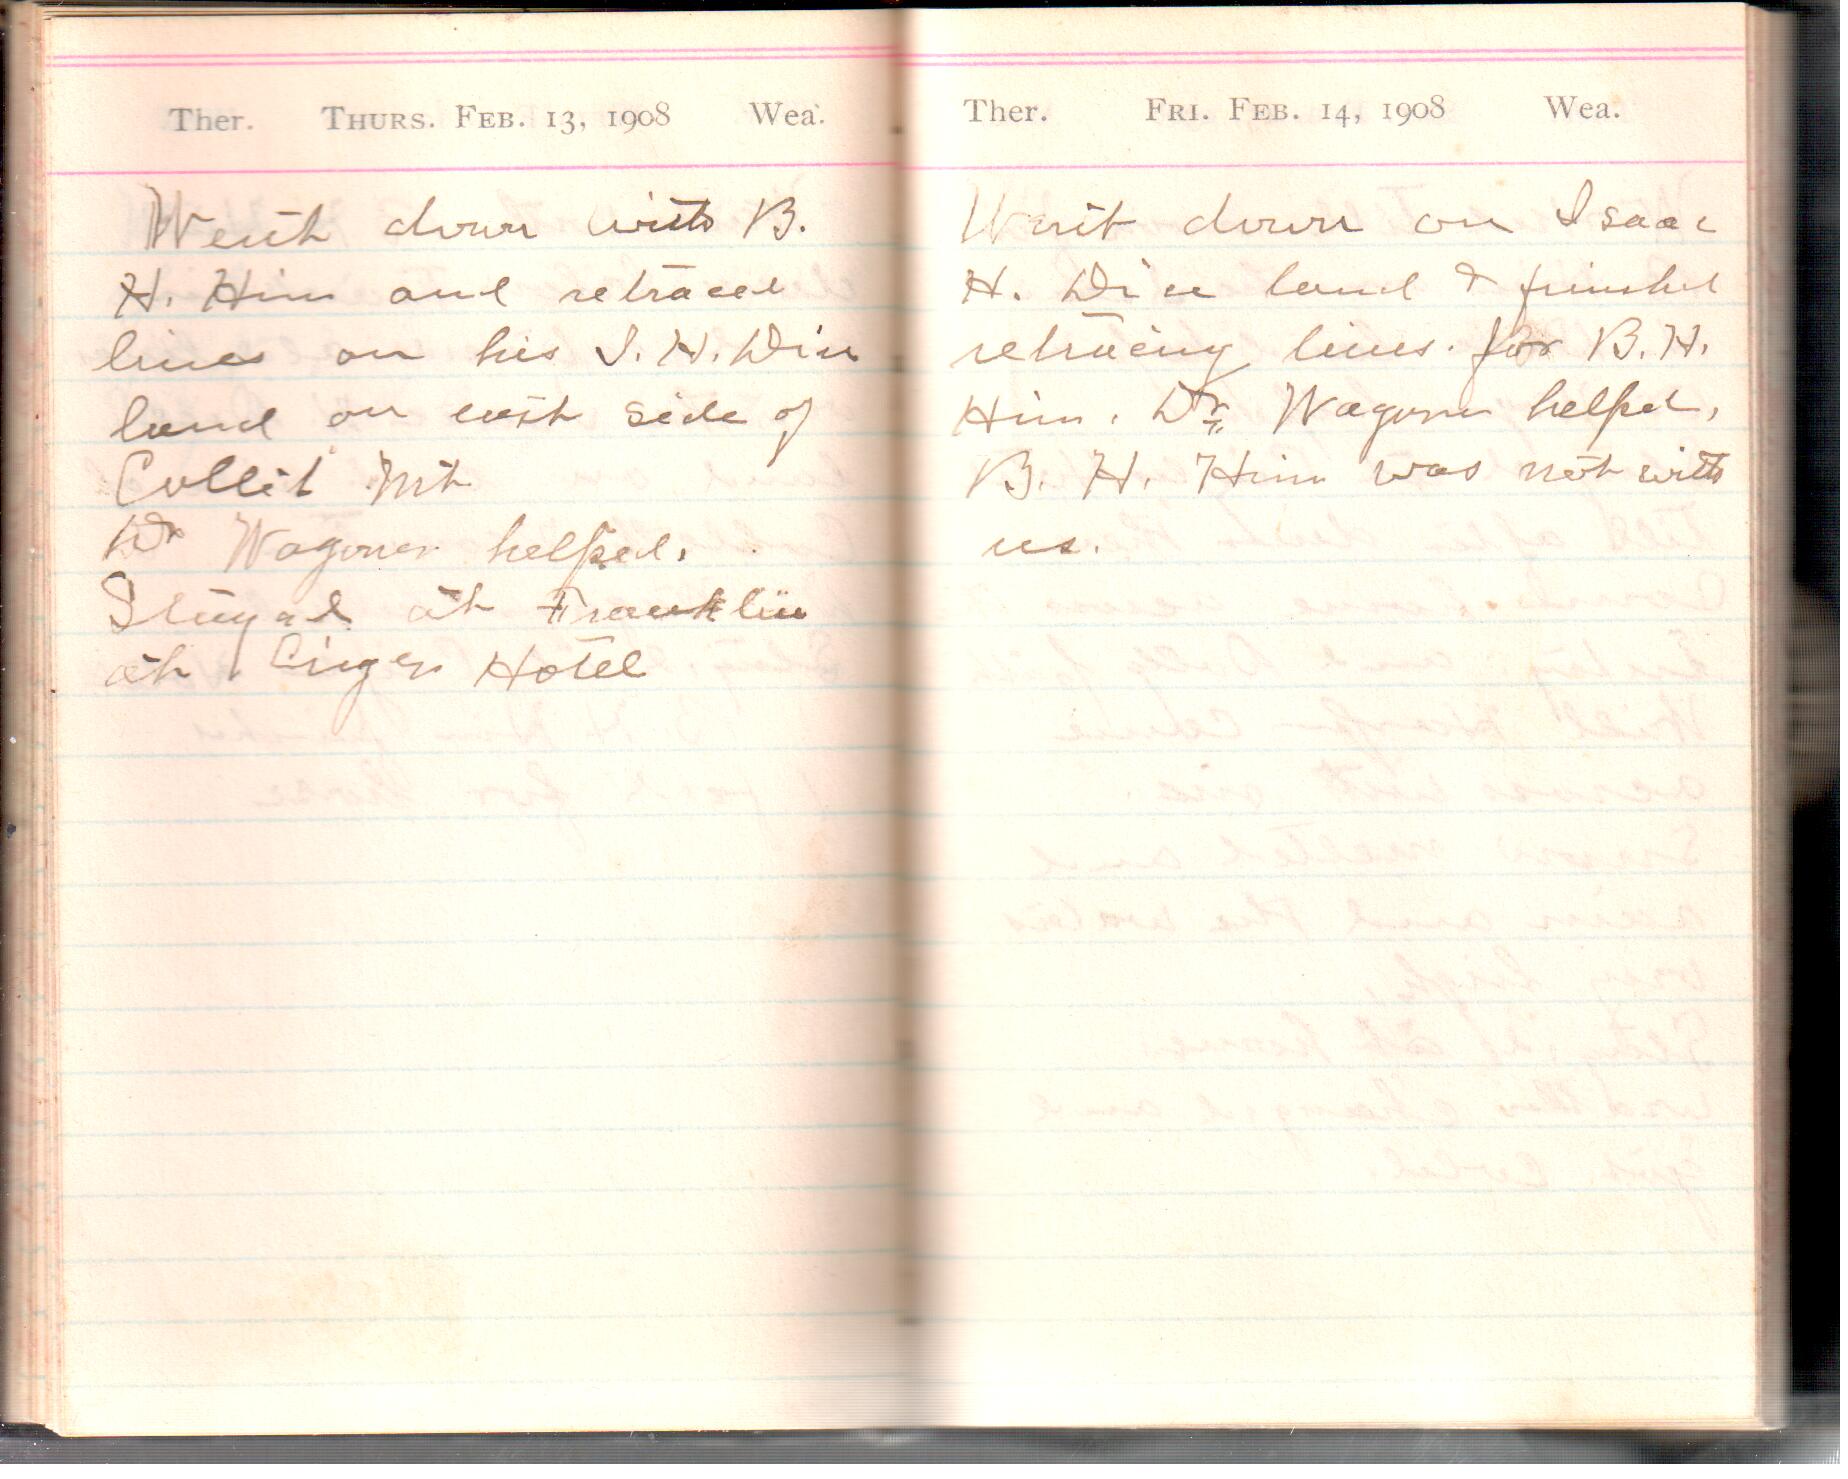 Ther. THURS. FEB. 13, 1908 Wea.
Went down with B.
H. Hiner and retraced
lines on his I. H. Dice
land on east side of
Mt
Dr Wagoner helped.
Stayed at Franklin
at Hotel
Ther. FRI. FEB. 14, 1908 Wea.
Went down on Isaac
H. Dice land & finished
retracing lines. for B. H.
Hiner. Dr. Wagoner helped.
B. H. Hiner was not with
us.